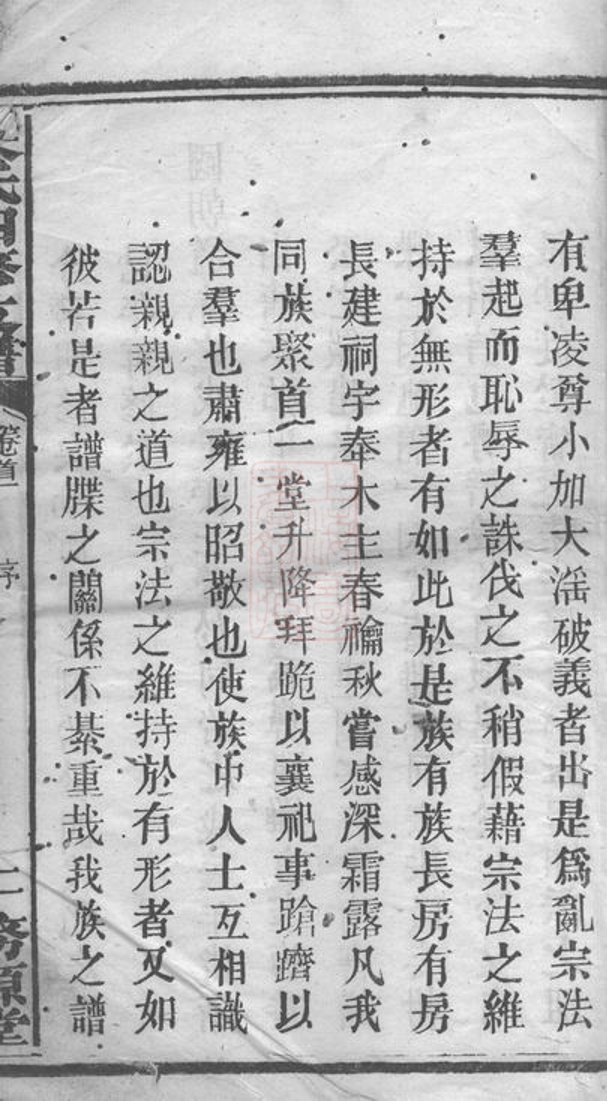 有卑凌尊小加大滛破義者出是爲亂宗法
羣起而恥辱之誅伐之不稍假藉宗法之維
持於無形者有如此於是族有族長房有房
長建祠宇奉木主春禴秋嘗感深霜露凡我
同族聚首一堂升降拜跪以襄祀事蹌躋以
合羣也肅雍以昭敬也使族中人士互相識
認親親之道也宗法之維持於有形者又如
彼若是者譜牒之關係不綦重哉我族之譜
氏四修支譜 卷首 序 二 務源堂